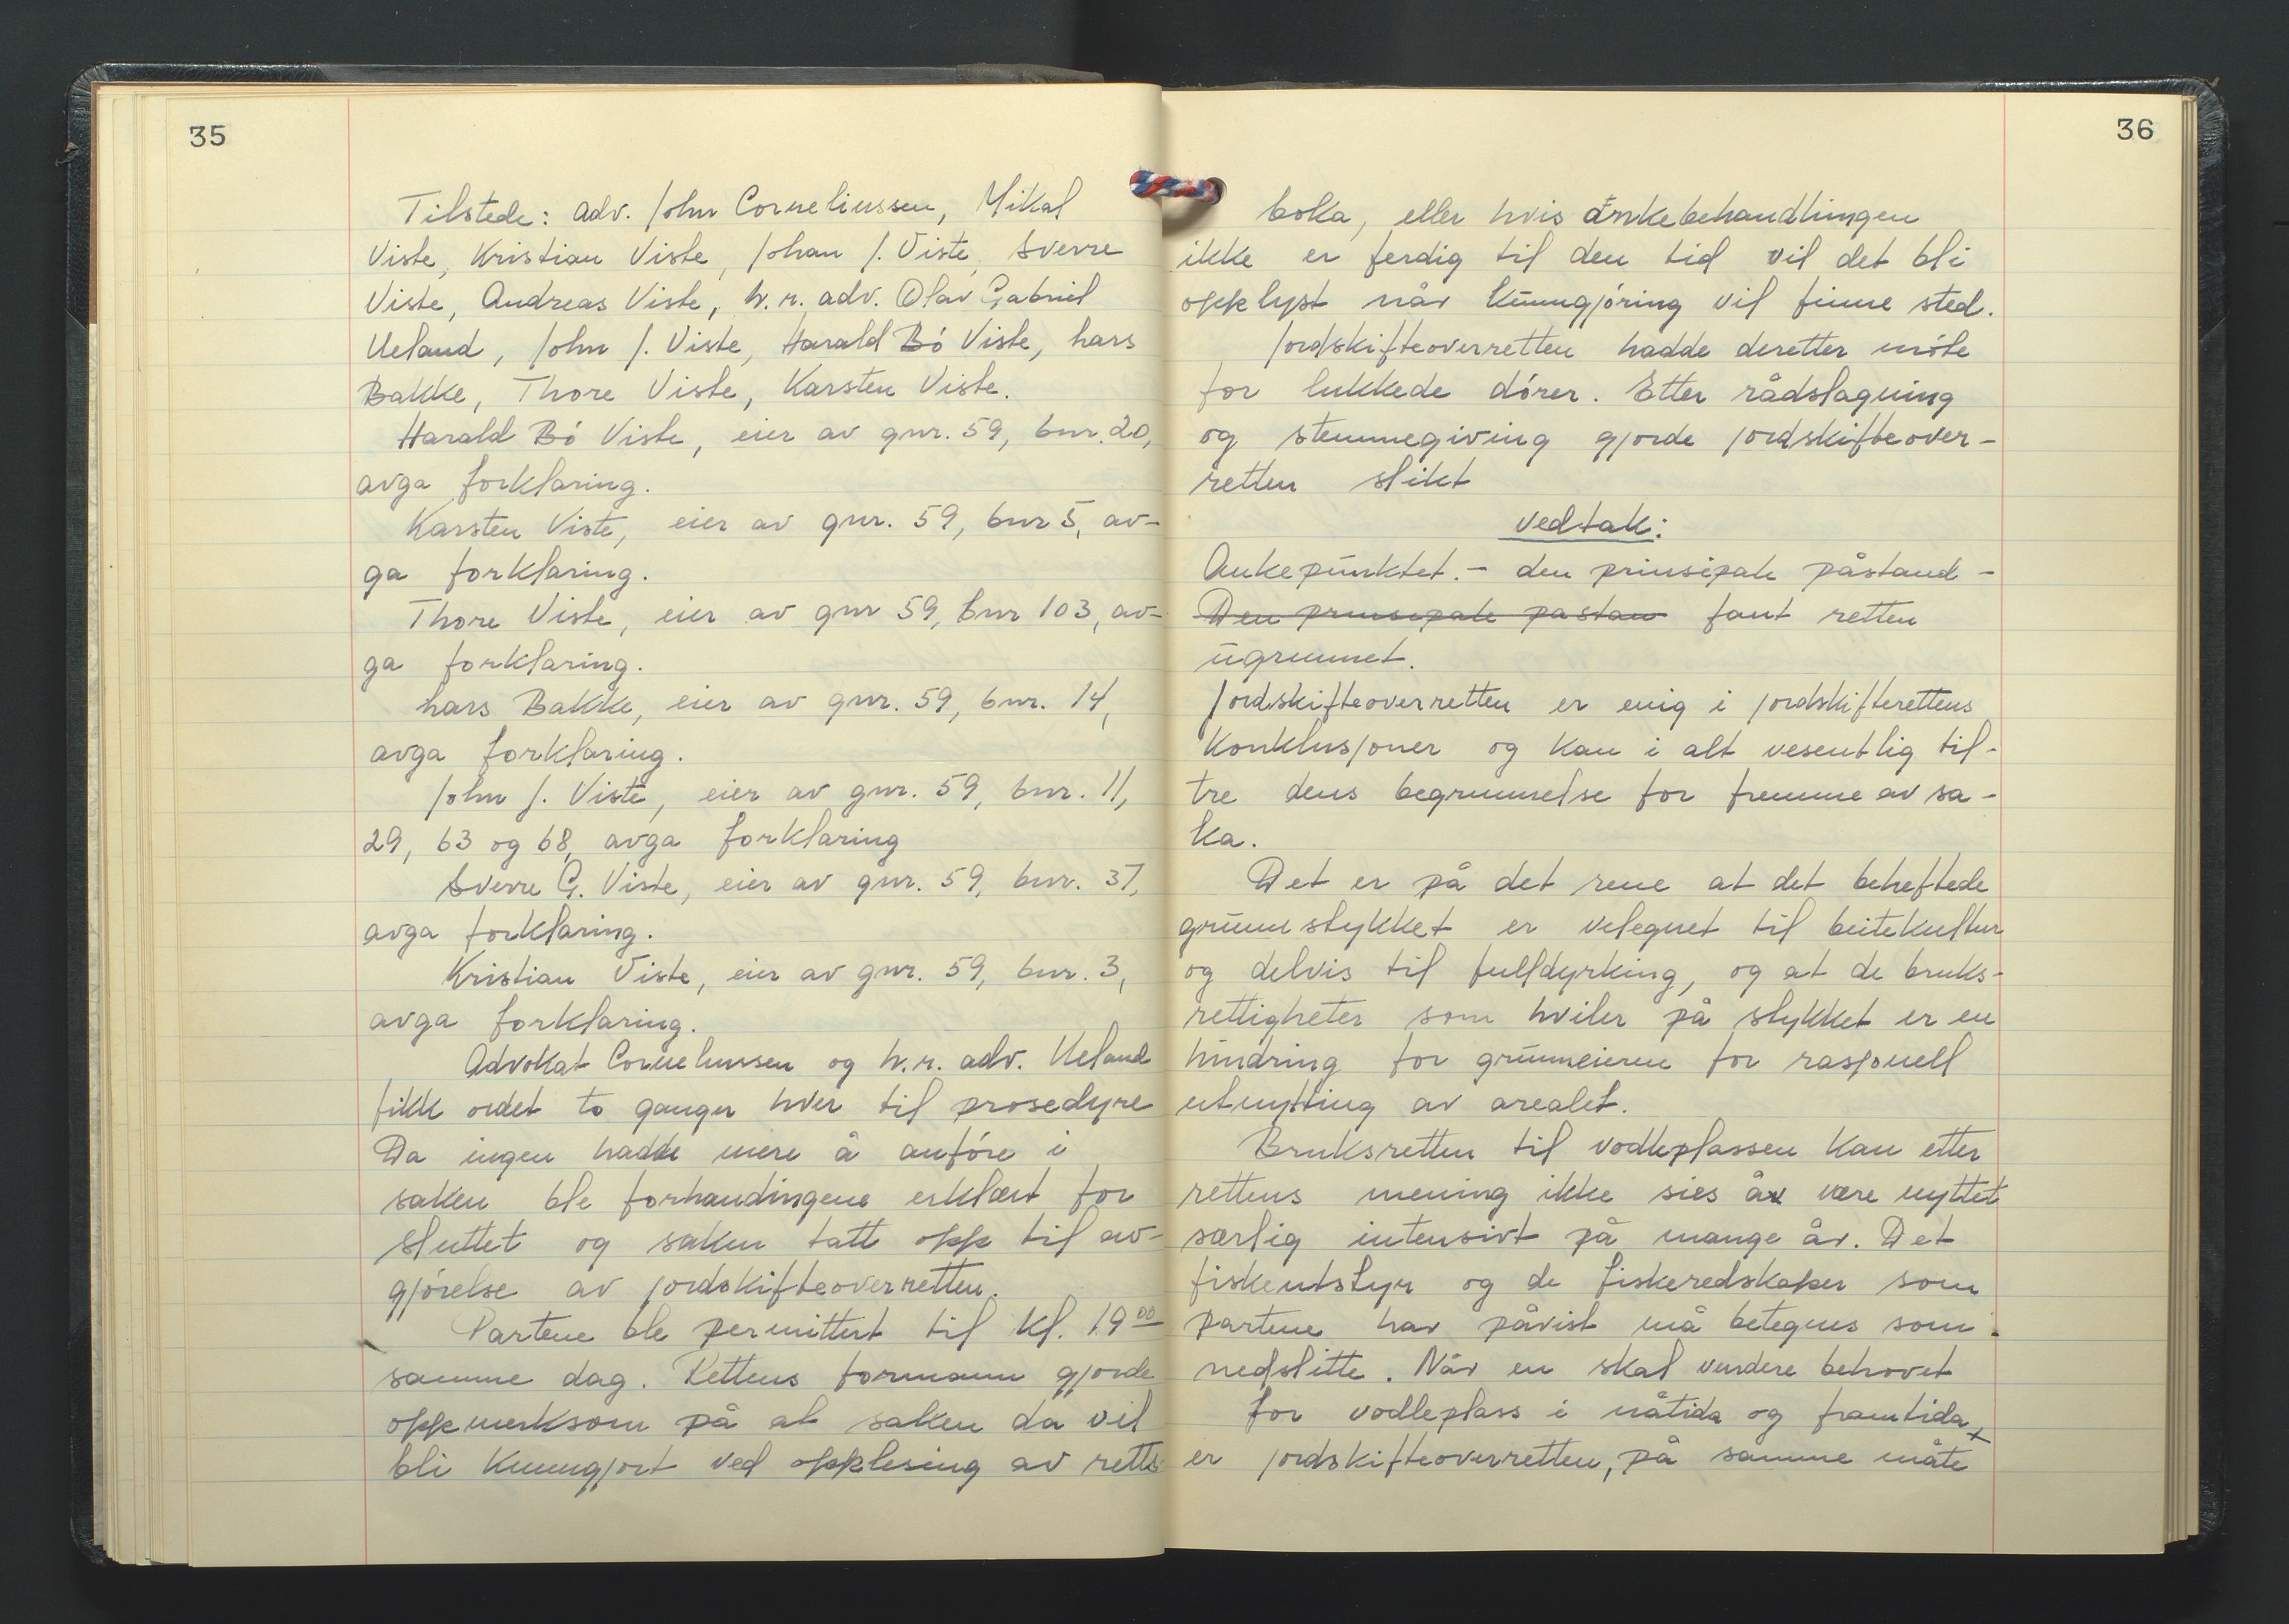 35
Tilstede: adv. John Corneliussen, Mikal
Viste, Kristian Viste, Johan J. Viste, Sverre
Viste, Andreas Viste, h.r. adv. Olav Gabriel
Ueland, John J. Viste, Harald Bó Viste, Lars
Bakke, Thore Viste, Karsten Viste.
Harald Bó Viste, eier av gnr. 59, bnr. 20,
avga forklaring.
Karsten Viste, eier av gnr. 59, bnr 5, av-
ga forklaring.
Thore Viste, eier av gnr 59, bnr 103, av-
ga forklaring.
Lars Bakke, eier av gnr. 59, bnr. 14,
avga forklaring.
John J. Viste, eier av gnr. 59, bnr. 11,
29, 63 og 68, avga forklaring
Sverre G. Viste, eier av gnr. 59, bnr. 37,
avga forklaring.
Kristian Viste, eier av gnr. 59, bnr. 3,
avga forklaring.
Advokat Corneliussen og h.r. adv. Ueland
fikk ordet to ganger hver til prosedyre
Da ingen hadde mere å anfóre i
saken ble forhandingene erklært for
sluttet og saken tatt opp til av-
gjórelse av jordskifteoverretten.
Partene ble permittert til kl. 19 00
samme dag. Rettens formann gjorde
oppmerksom på at saken da vil
bli kunngjort ved opplesing av retts
36
boka, eller hvis ankebehandlingen
ikke er ferdig til den tid vil det bli
opplyst når kunngjóring vil finne sted.
Jordskifteoverretten hadde deretter móte
for lukkede dórer. Etter rådslagning
og stemmegiving gjorde jordskifteover-
retten slikt
vedtak:
Ankepunktet. - den prinsipale påstand -
Den prinsipale pastan fant retten
ugrunnet.
Jordskifteoverretten er enig i jordskifterettens
konklusjoner og kan i alt vesentlig til-
tre dens begrunnelse for fremme av sa-
ka.
Det er på det rene at det beheftede
grunnstykket er velegnet til beitekultur
og delvis til fulldyrking, og at de bruks-
rettigheter som hviler på stykket er en
hindring for grunneieren for rasjonell
utnytting av arealet.
Bruksretten til vodleplassen kan etter
rettens mening ikke sies å være nyttet
særlig intensivt på mange år. Det
fiskeutstyr og de fiskeredskaper som
partene har påvist må betegnes som
nedslitte. Når en skal vurdere behovet
for vodleplass i nåtida og framtida
er jordskifteoverretten, på samme måte